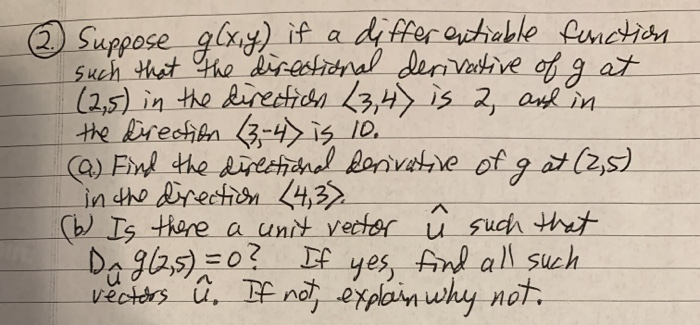 2. Suppose g(x,y) if a differentiable function
such that the directional derivative of g at
(2,5) in the direction <3,4> is 2, and in
the direction <3,-4> is 10.
(a) Find the directional derivative of g at (2,5)
in the direction <4,3>.
(b) Is there a unit vector û such that
D_û g(2,5) = 0? If yes, find all such
vectors û. If not, explain why not.